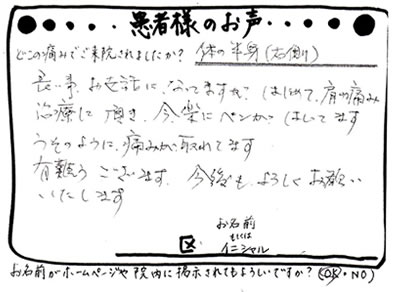 患者様のお声
どこの痛みでご来院されましたか? 体の半身(右側)
長い事、お世話になってますれど はじめて、肩の痛み
治療して頂き、今楽にペンがはしてます
うそのように、痛みが取れてます
有難うございます、今後もよろしくお願い
いたします
お名前
もしくは
イニシャル
区
お名前がホームページや院内に掲示されてもよろしいですか?(OK・NO)